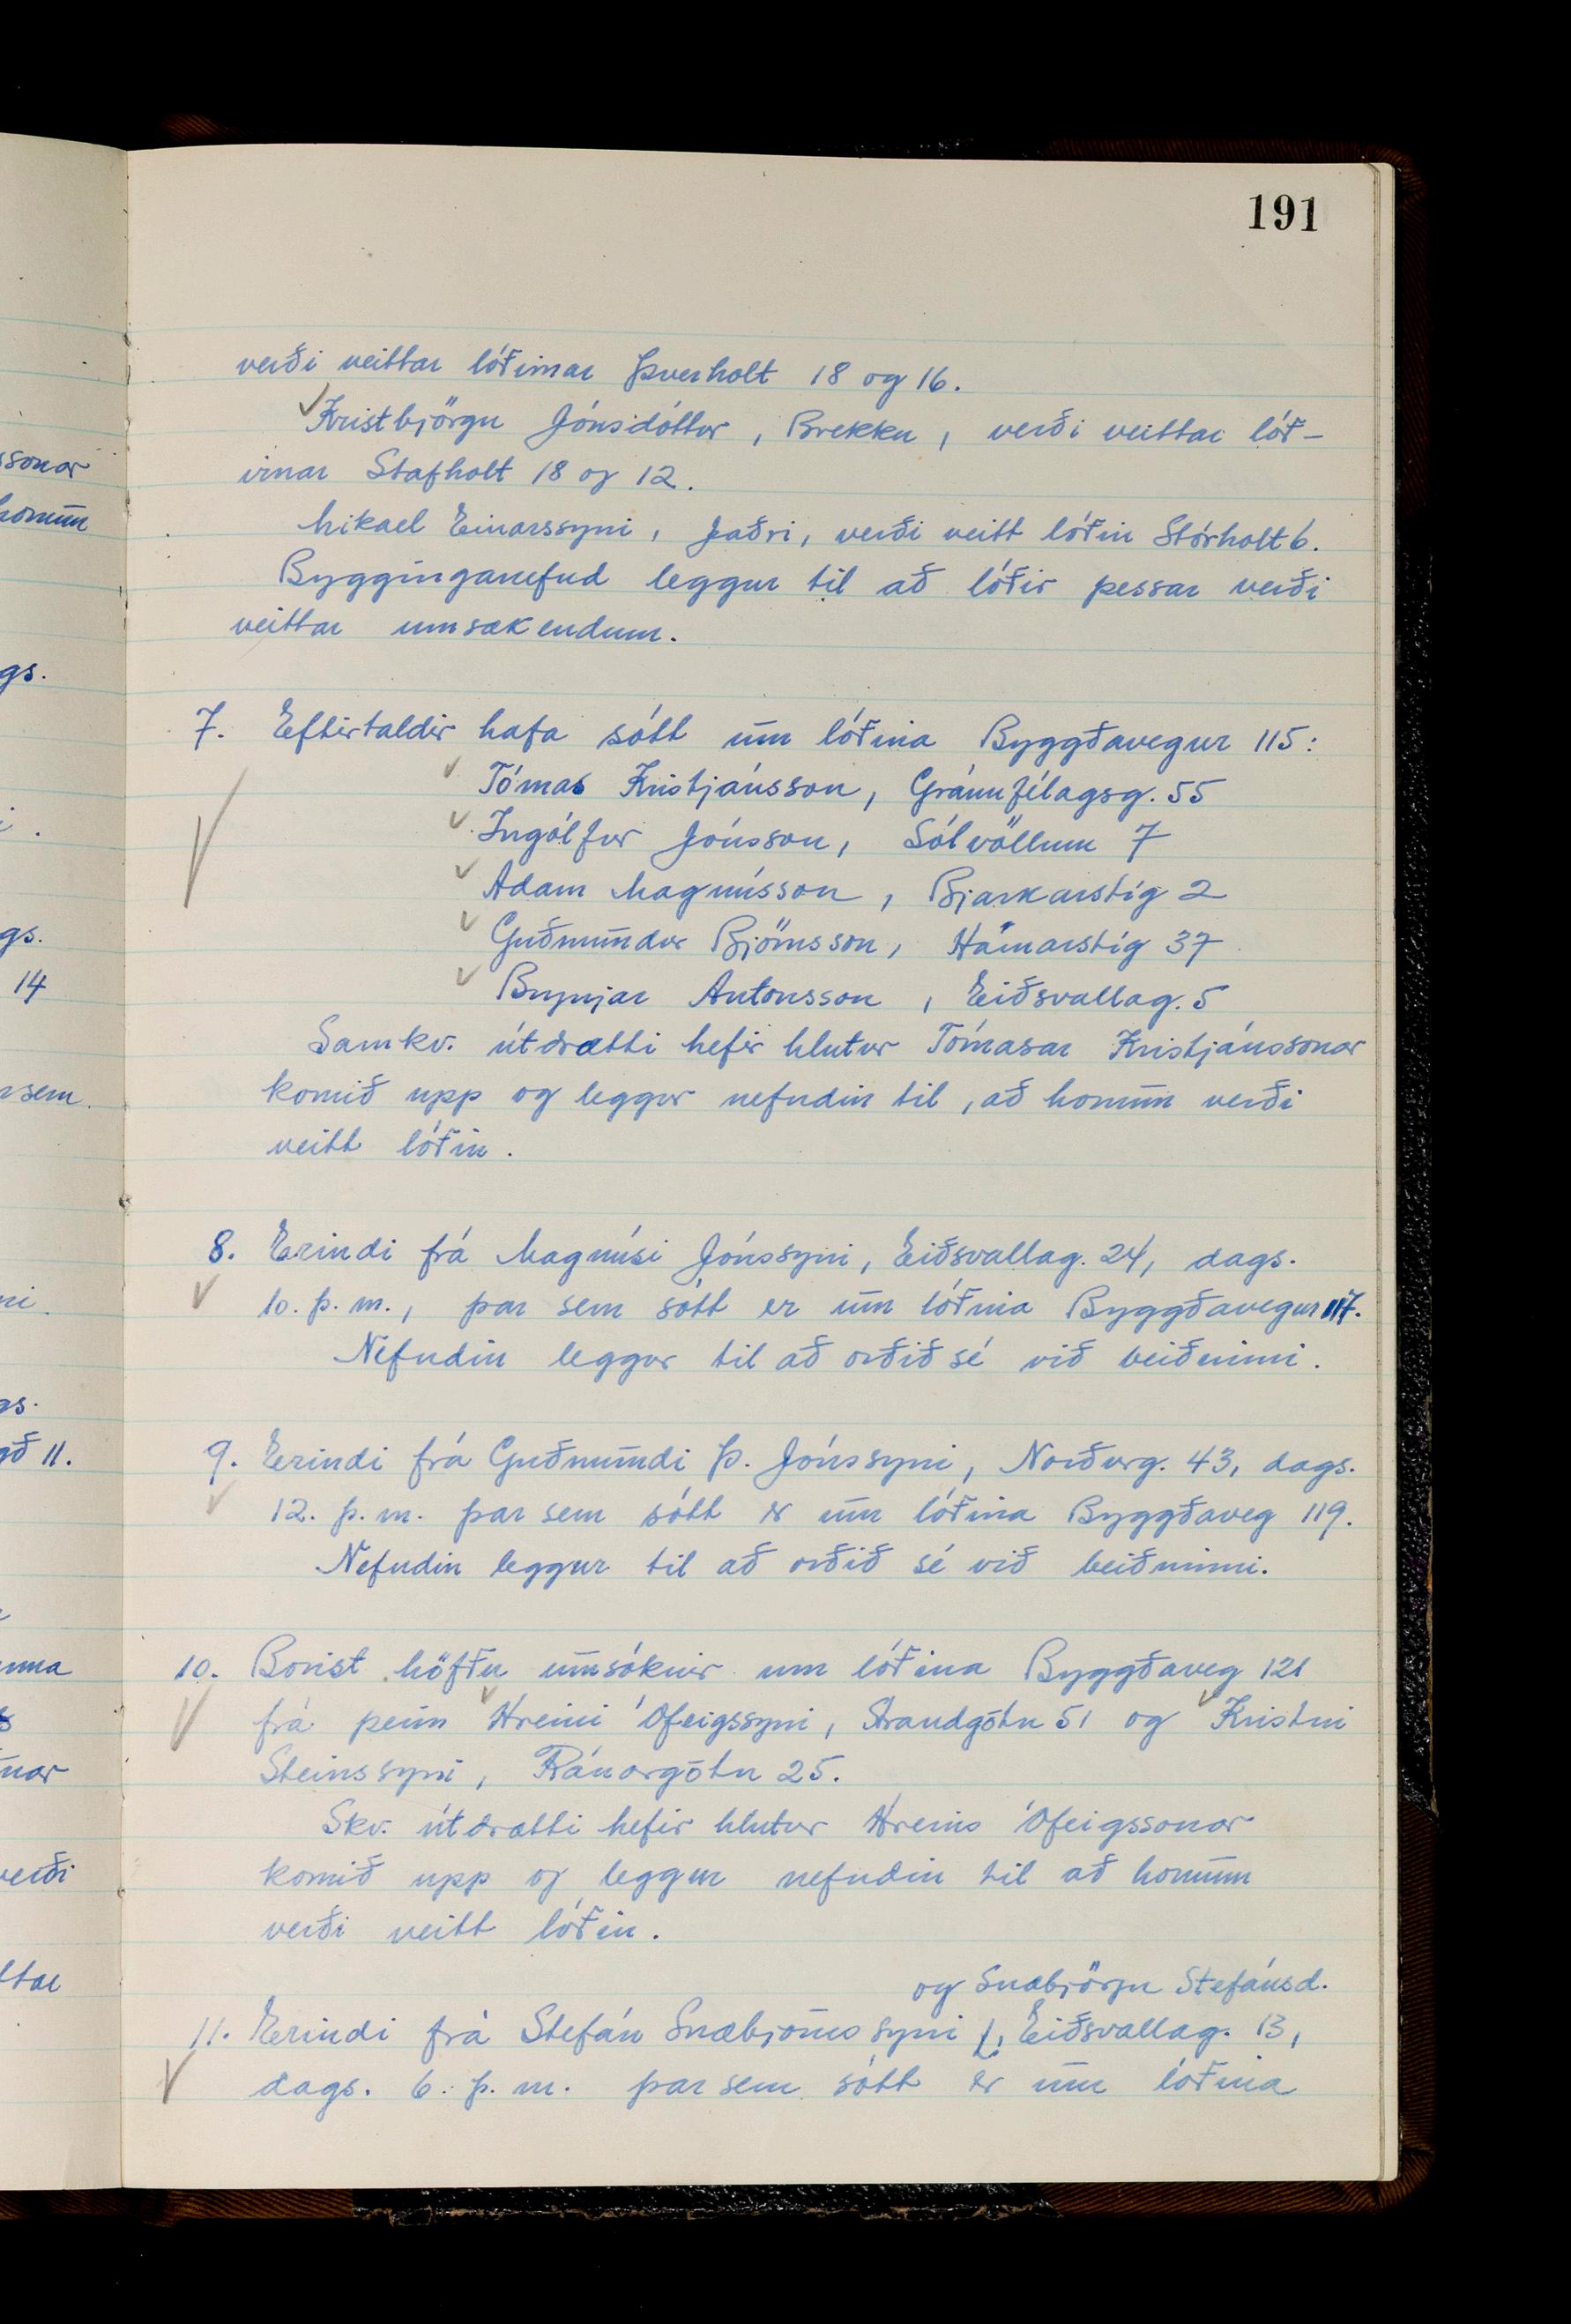 191
verði veittar lóðirnar Þverholt 18 og 16.
Kristbjörgu Jónsdóttur, Brekku, verði veittar lóð-
irnar Stafholt 18 og 12.
Mikael Einarssyni, Jaðri, verði veitt lóðin Stórholt 6.
Bygginganefnd leggur til að lóðir þessar verði
veittar umsækendum.
7. Eftirtaldir hafa sótt um lóðina Byggðavegur 115:
Tómas Kristjánsson, Gránufélagsg. 55
Ingólfur Jónsson, Sólvöllum 7
Adam Magnússon, Bjarkarstíg 2
Guðmundur Björnsson, Hamarstíg 37
Brynjar Antonsson, Eiðsvallag. 5
Samkv. útdrætti hefir hlutur Tómasar Kristjánssonar
komið upp og leggur nefndin til, að honum verði
veitt lóðin.
8. Erindi frá Magnúsi Jónssyni, Eiðsvallag. 24, dags.
10. þ. m., þar sem sótt er um lóðina Byggðavegur 117.
Nefndin leggur til að orðið sé við beiðninni.
9. Erindi frá Guðmundi Þ. Jónssyni, Norðurg. 43, dags.
12. þ. m. þar sem sótt er um lóðina Byggðaveg 119.
Nefndin leggur til að orðið sé við beiðninni.
10. Borist höfðu umsóknir um lóðina Byggðaveg 121
frá þeim Hreini Ófeigssyni, Strandgötu 51 og Kristni
Steinssyni, Ránargötu 25.
Skv. útdrætti hefir hlutur Hreins Ófeigssonar
komið upp og leggur nefndin til að honum
verði veitt lóðin.
og Snæbjörgu Stefánsd.
11. Erindi frá Stefán Snæbjörnssyni, Eiðsvallag. 13,
dags. 6. þ. m. þar sem sótt er um lóðina